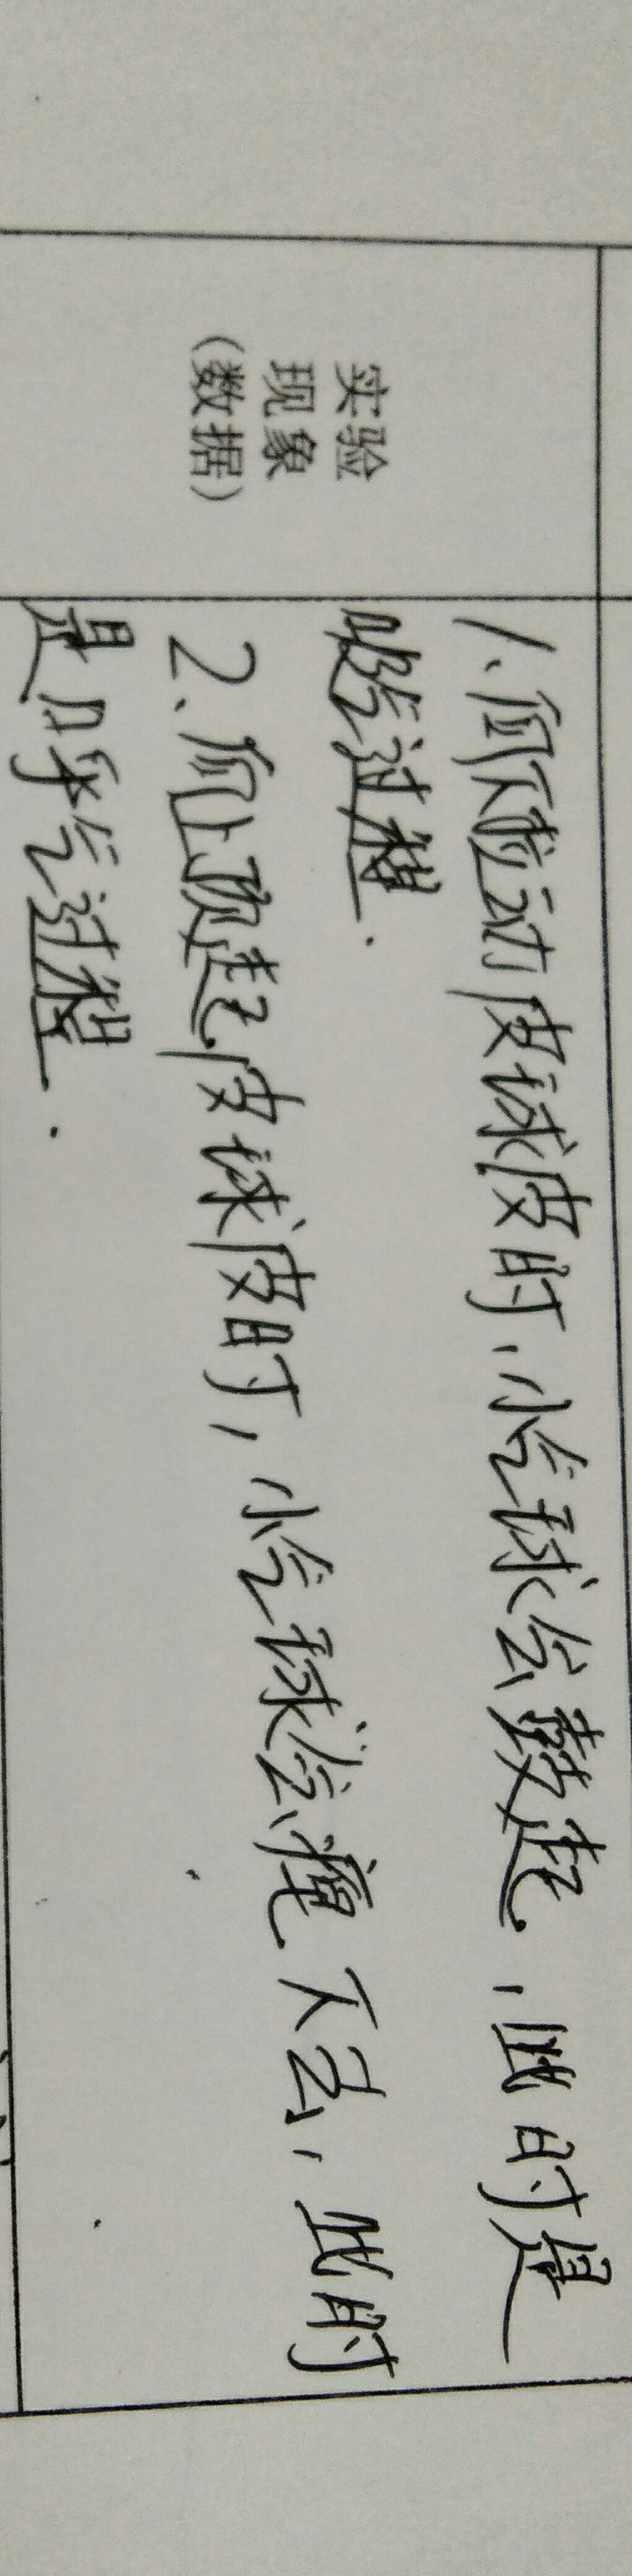 实验
现象
(数据)
1、向下拉动皮球皮时,小气球会鼓起,此时是
吸气过程.
2、向上顶起皮球皮时,小气球会瘪下去,此时
是呼气过程.